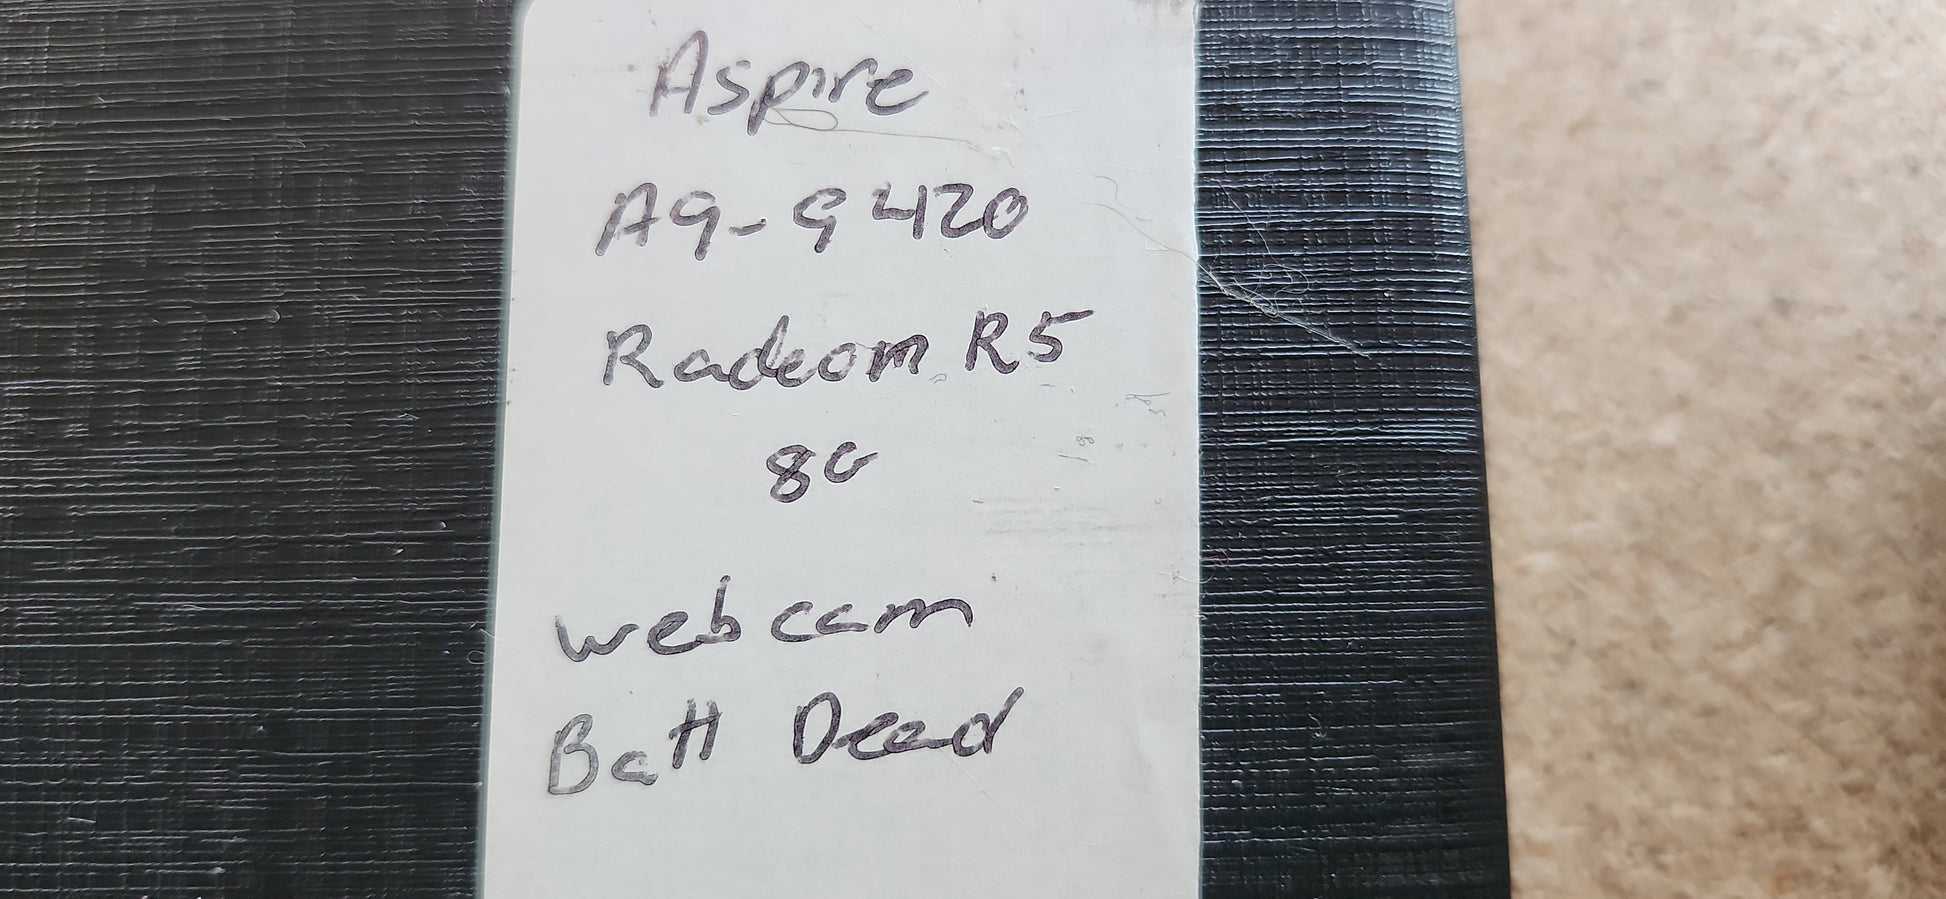 Aspire
A9-9420
Radeon R5
8G
webcam
Batt Dead